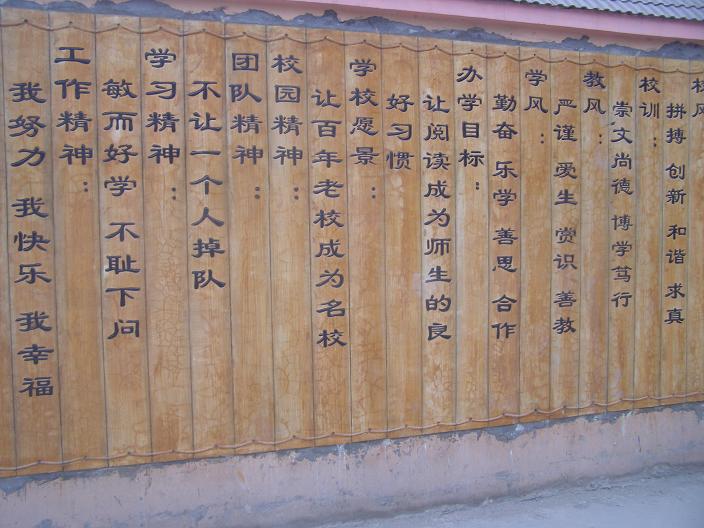 校风
拼搏 创新 和谐 求真
校训：
崇文尚德 博学笃行
教风：
严谨 爱生 赏识 善教
学风：
勤奋 乐学 善思 合作
办学目标：
让阅读成为师生的良
好习惯
学校愿景：
让百年老校成为名校
校园精神：
团队精神：
不让一个人掉队
学习精神：
敏而好学 不耻下问
工作精神：
我努力 我快乐 我幸福